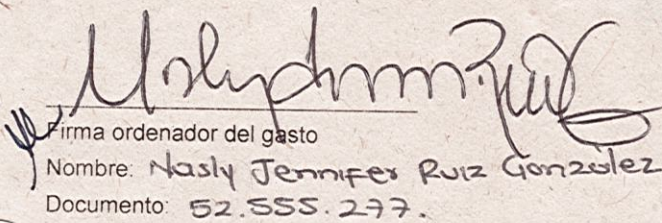 Firma ordenador del gasto
Nombre: Nasly Jennifer Ruiz González
Documento: 52.555.277.